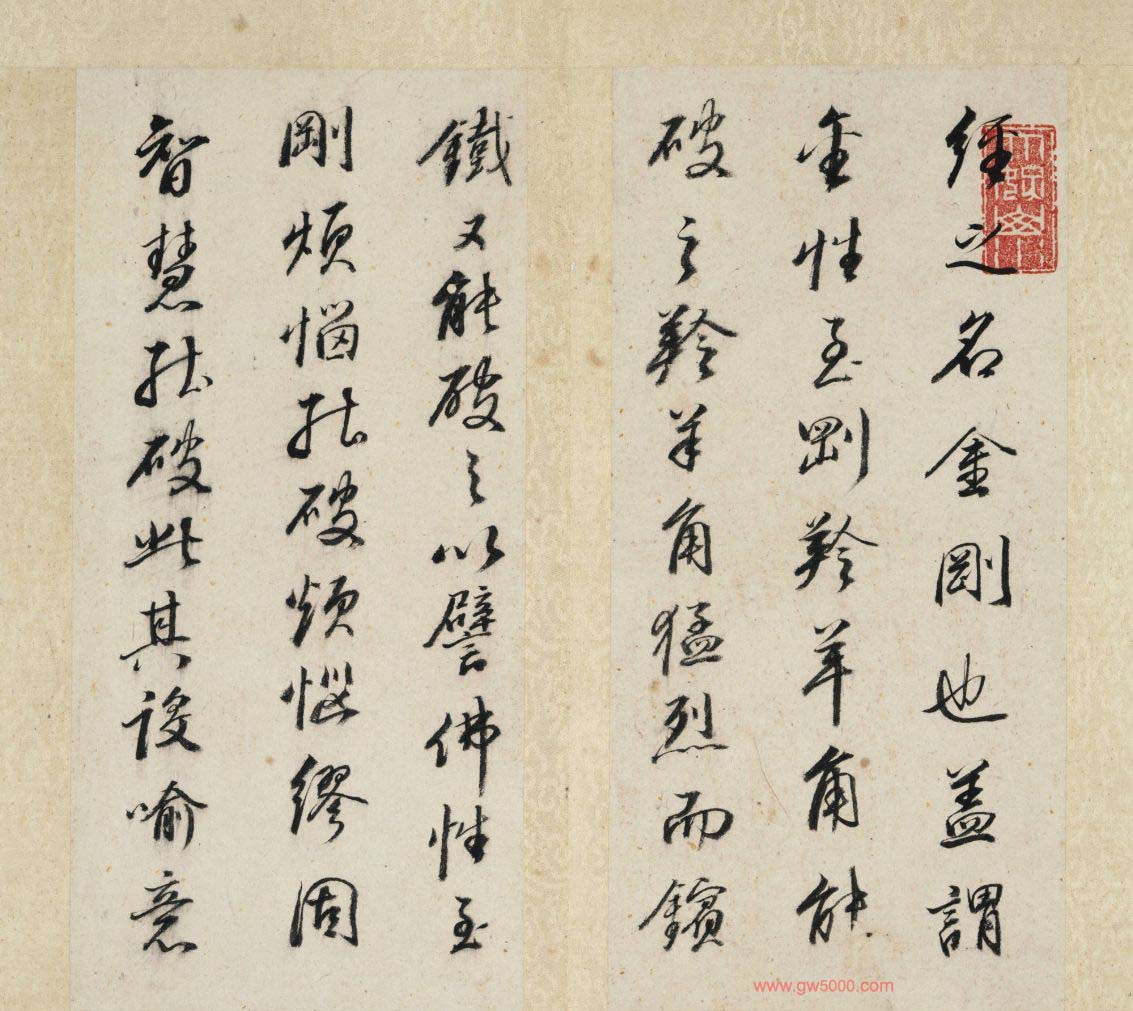 經之名金剛也蓋謂
金性至剛羚羊角能
破之羚羊角猛烈而鑌
鐵又能破之以譬佛性至
剛煩惱拈破破煩惱繆固
智慧能破此其設喻意
www.gw5000.com